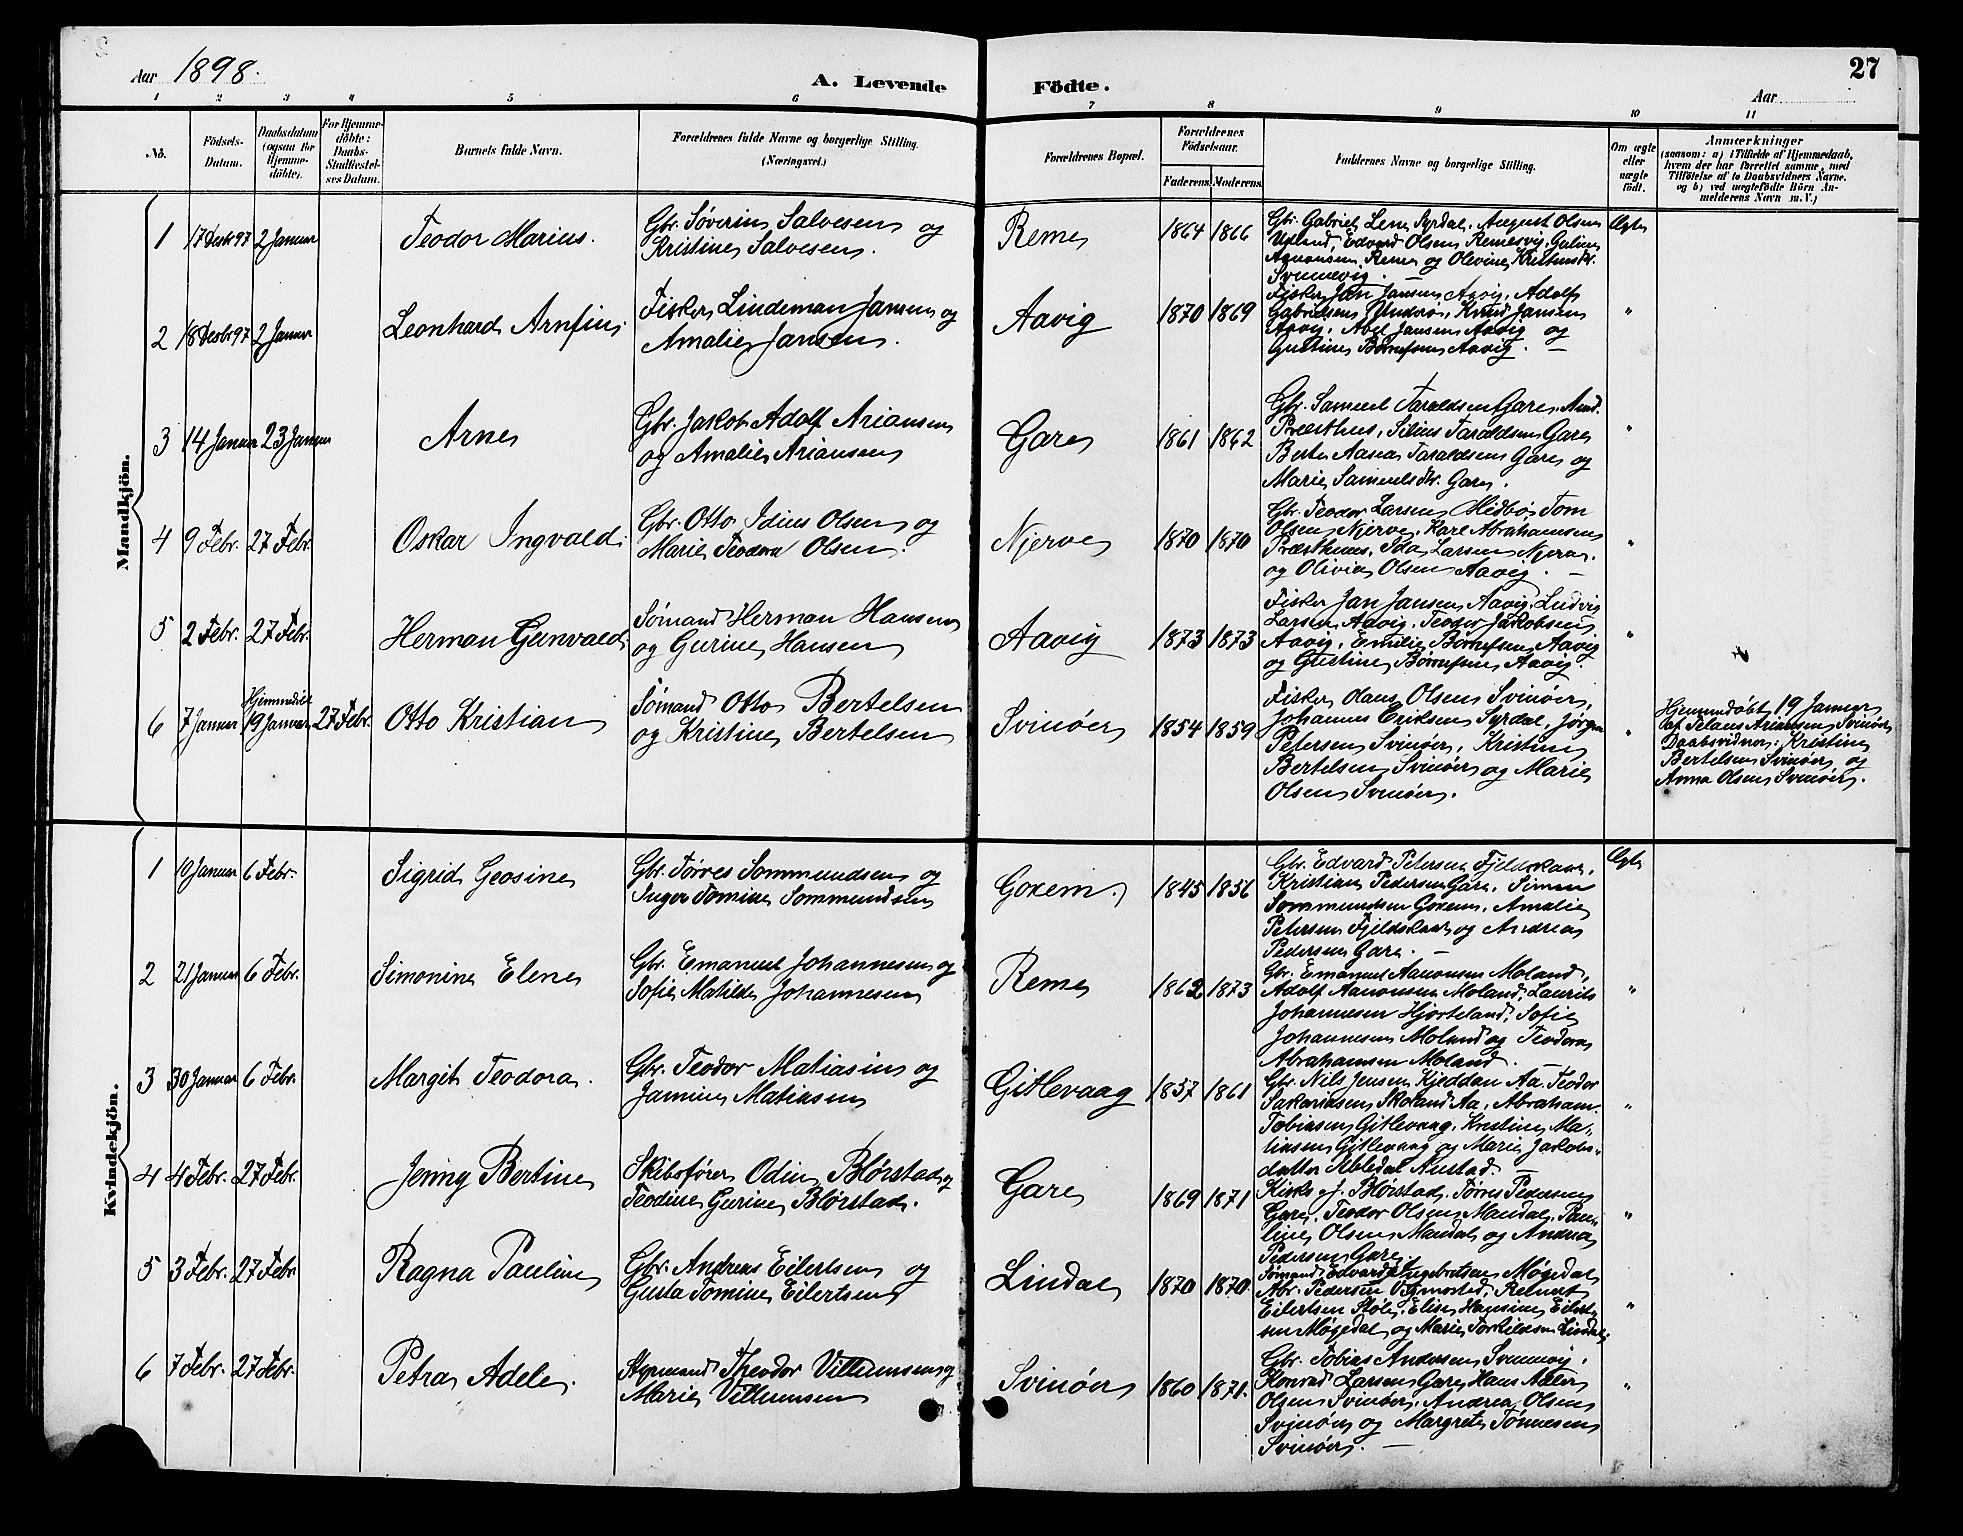 Aar 1898.
A. Levende Födte.
27
Aar
1 2 3 4 5 6 7 8 9 10 11
No.
Födsels-Datum.
Daabsdatum (ogsaa for Hjemme-döbte).
For Hjemme-döbte: Daabs-Stadfæstel-ses Datum.
Barnets fulde Navn.
Forældrenes fulde Navne og borgerlige Stilling. (Næringsvei.)
Forældrenes Bopæl.
Forældrenes Födselsaar.
Faderens Moderens
Faddernes Navne og borgerlige Stilling.
Om ægte eller uægte födt.
Anmærkninger
(saasom: a) i Tilfælde af Hjemmedaab,
hvem der har forrettet samme, med
Tilföielse af to Daabsvidners Navne.
og b) ved uægtefödte Börn An-
melderens Navn m. V.)
Mandkjön.
1 17 Decbr 97 2 Januar Teodor Marius.
Gbr. Søverin Salvesen og
Kristine Salvesen.
Reme 1864 1866
Gbr. Gabriel Lene Syrdal, August Olsen
Udland, Edvard Olsen Remesvig, Guline
Aanonsen Reme og Olevine Kristensdr.
Svinnevig. —
Ægte
2 18 Decbr 97 2 Januar Leonhard Arnfin.
Fisker Lindeman Jansen og
Amalie Jansen.
Aavig 1870 1869
Fisker Jan Jansen Aavig, Adolf
Gabrielsen Undsøi, Knud Jansen
Aavig, Abel Jansen Aavig og
Gustine Børrufsen Aavig. —
"
3 14 Januar 23 Januar Arne
Gbr. Jakob Adolf Ariansen
og Amalie Ariansen
Gare 1861 1862
Gbr. Samuel Taraldsen Gare, And.
Præsthus, Silius Taraldsen Gare
Berte Aasea Taraldsen Gare og
Marie Samuelsdtr. Gare.
"
4 9 Febr. 27 Febr. Oskar Ingvald.
Gbr. Otto Idius Olsen og
Marie Teodora Olsen.
Njerve 1870 1870
Gbr. Teodor Larsen Midbø, Tom
Olsen Njerve, Karl Abrahamsen
Præsthus, Ida Larsen Njerve
og Olivia Olsen Aavig. —
"
5 2 Febr. 27 Febr. Herman Gunvald
Sømand Herman Hansen
og Gurine Hansen
Aavig 1873 1873
Fisker Jan Jansen Aavig, Ludvig
Larsen Aavig, Teodor Jakobsen
Aavig, Emilie Børrufsen Aavig
og Gustine Børrufsen Aavig.
"
6 7 Januar Hjemmedøbt 19 Januar 27 Febr. Otto Kristian
Sømand Otto Bertelsen
og Kristine Bertelsen
Svinøer 1854 1859
Fisker Hans Olsen Svinøer,
Johannes Eriksen Syrdal, Jørgen
Petersen Svinøer, Kristine
Bertelsen Svinøer og Marie
Olsen Svinøer.
"
Hjemmedøbt 19 Januar
af Telaus Ariansen Svinøer
Daabsvidner: Kristine
Bertelsen Svinøer og
Anna Olsen Svinøer.
Kvindekjön.
1 10 Januar 6 Febr. Sigrid Geosine
Gbr. Tørres Sommundsen og
Inger Tomine Sommundsen
Goxem. 1845 1856
Gbr. Edvard Petersen Fjeldskaar,
Kristian Pedersen Gare, Simen
Sommundsen Goxem, Amalie
Petersen Fjeldskaar og Andrea
Pedersen Gare. —
Ægte
2 21 Januar 6 Febr. Simonine Elene
Gbr. Emanuel Johannesen og
Sofie Matilde Johannesen
Reme 1862 1873
Gbr. Emanuel Aanonsen Moland,
Adolf Aanonsen Moland, Laurits
Johannesen Hjorteland, Sofie
Johannesen Moland og Teodora
Abrahamsen Moland. —
"
3 30 Januar 6 Febr. Margit Teodora.
Gbr. Teodor Matiasen og
Jamine Matiasen
Gitlevaag 1857 1861
Gbr. Nils Jensen Kjeddan Aa, Teodor
Sakariasen Skoland Aa, Abraham
Tobiasen Gitlevaag, Kristine Ma-
tiasen Gitlevaag og Marie Jakobs-
datter Abledal Austad. —
"
4 4 Febr. 27 Febr. Jenny Bertine
Skibsfører Odin Blørstad og
Teodine Gurine Blørstad.
Gare 1869 1871
J. Blørstad, Tørres Pedersen
Gare, Teodor Olsen Mandal, Pau-
line Olsen Mandal og Andrea
Pedersen Gare.
"
5 3 Febr. 27 Febr. Ragna Pauline
Gbr. Andreas Eilertsen og
Gusta Tomine Eilertsen
Lindal 1870 1870
Sømand Edvard Ingebretsen Møgedal
Abr. Pedersen Vigmostad, Reinert
Eilertsen Støle, Elise Hansine Eilert-
sen Møgedal og Marie Torkildsen Lindal.
"
6 7 Febr. 27 Febr. Petra Adele.
Styrmand Theodor Villumsen og
Marie Villumsen
Svinøer 1860 1871.
Gbr. Tobias Andersen Svinnevig,
Konrad Larsen Gare, Hans Atler
Olsen Svinøer, Andrea Olsen
Svinøer og Margrete Tønnesen
Svinøer. —
"